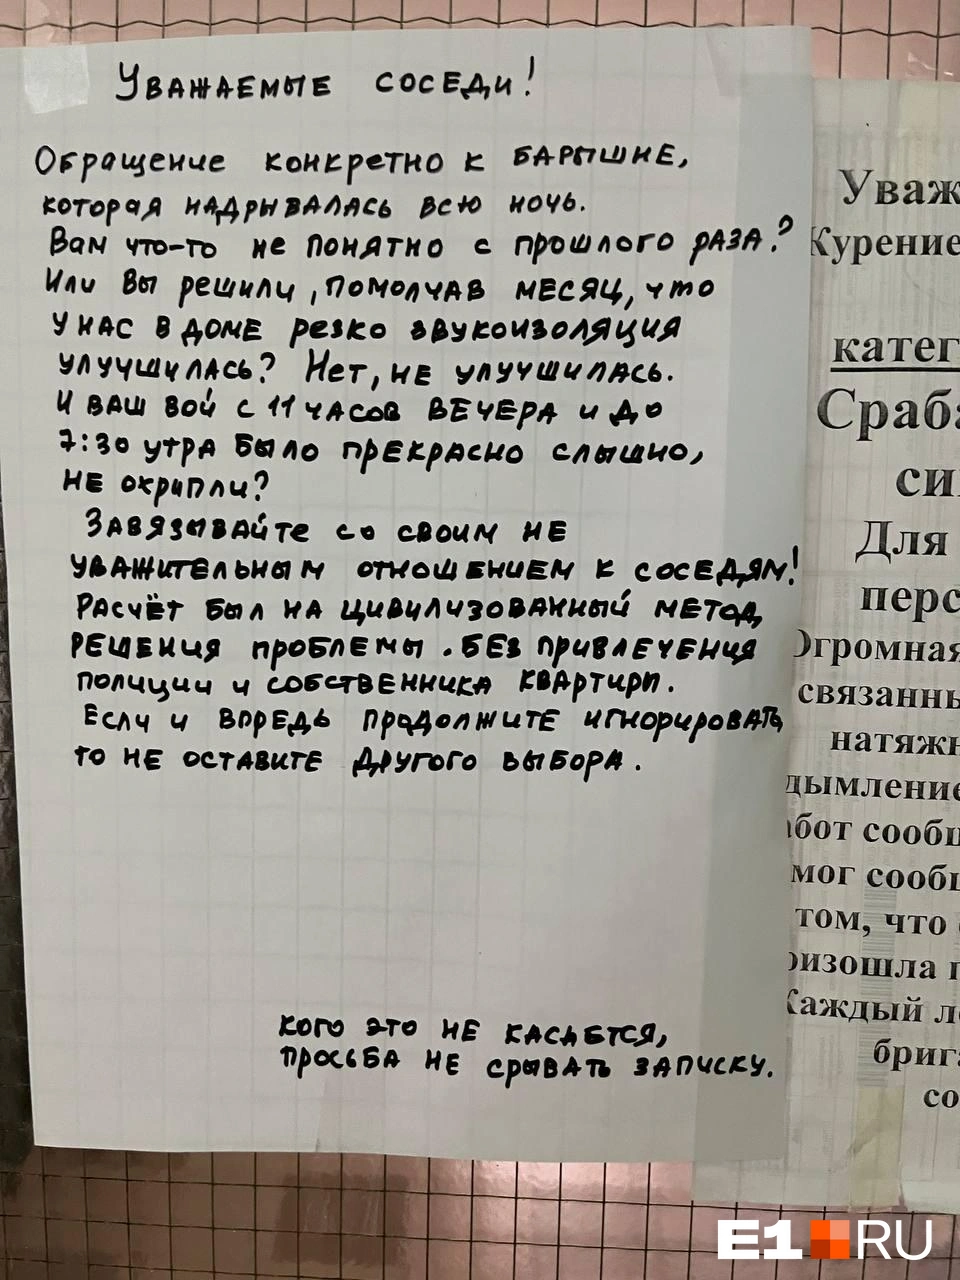 Уважаемые соседи!
Обращение конкретно к барышне,
которая надрывалась всю ночь.
Вам что-то не понятно с прошлого раза?
Или Вы решили, помолчав месяц, что
у нас в доме резко звукоизоляция
улучшилась? Нет, не улучшилась.
И ваш вой с 11 часов вечера и до
7:30 утра было прекрасно слышно,
не охрипли?
Завязывайте со своим не
уважительным отношением к соседям!
Расчёт был на цивилизованный метод
решения проблемы. Без привлечения
полиции и собственника квартиры.
Если и впредь продолжите игнорировать,
то не оставите другого выбора.
Кого это не касается,
просьба не срывать записку.
Уваж
Курение
катег
Сраба
си
Для
перс
Огромная
связаннь
натяжн
дымление
абот сообщ
мог сообщ
том, что
оизошла п
Каждый л
брига
со
E1.RU